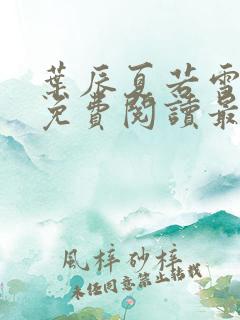 葉辰夏若雪
免費閱讀最
風梓砂梓
未经同意禁止转载